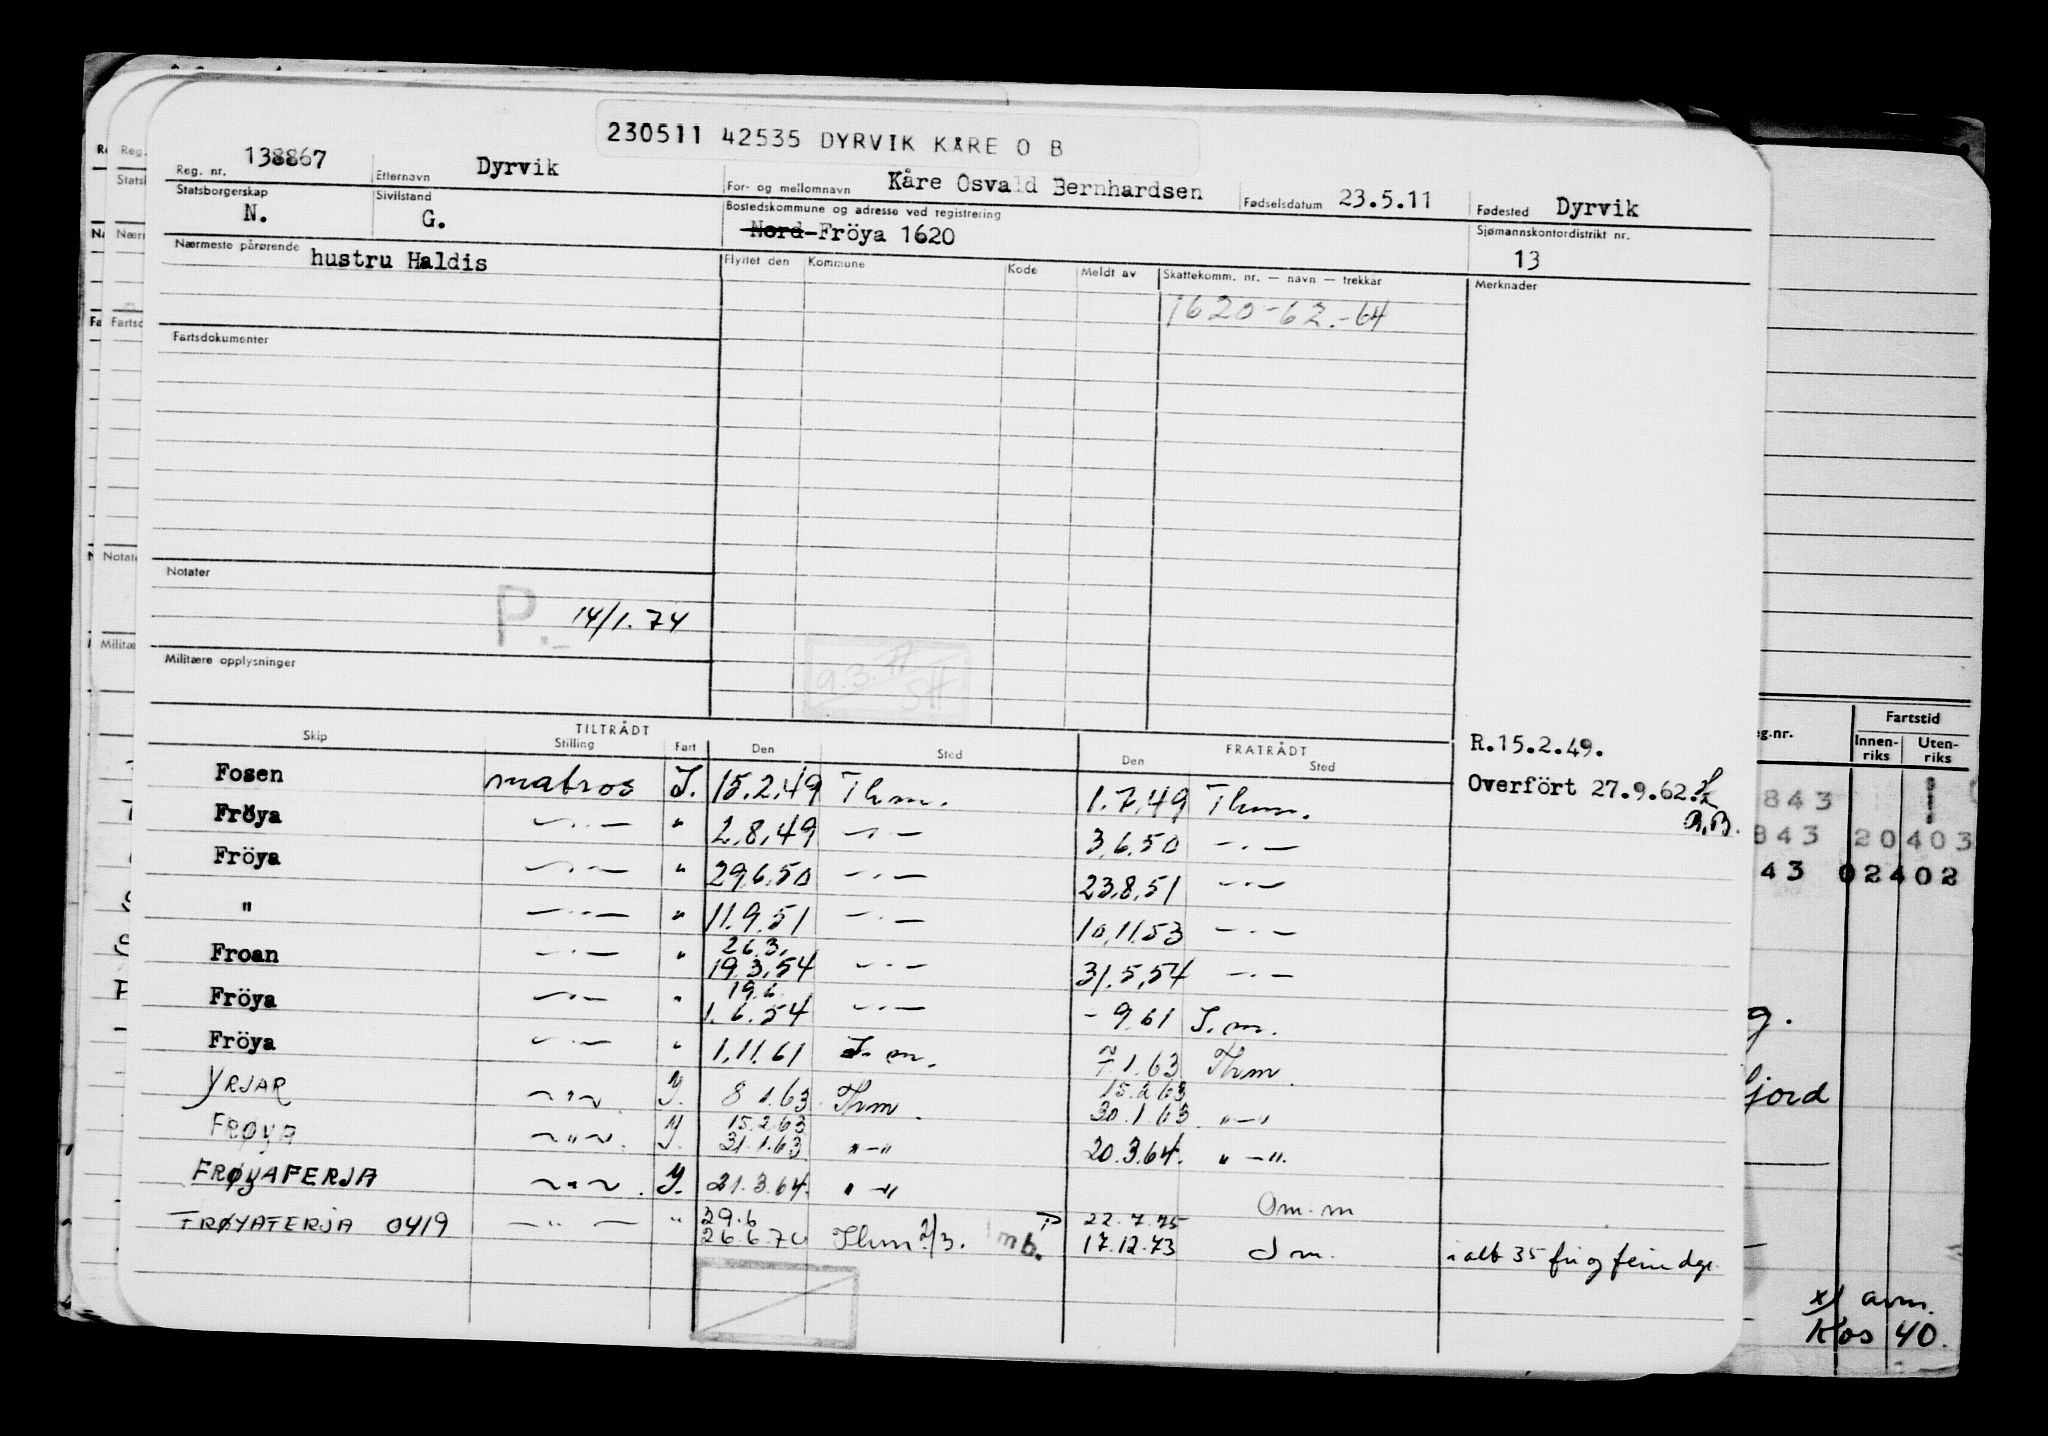 230511 42535 DYRVIK KÅRE O B
Reg. nr. 138867 Etternavn Dyrvik For- og mellomnavn Kåre Osvald Bernhardsen Fødselsdatum 23.5.11 Fødested Dyrvik
Statsborgerskap N. Sivilstand G. Bostedskommune og adresse ved registrering Nord-Fröya 1620 Sjømannskontordistrikt nr. 13
Nærmeste pårørende hustru Haldis Flyttet den Kommune Kode Meldt av Skattekomm. nr. — navn — trekkar Merknader
1620-62.-64
Fartsdokumenter
Notater
P. 14/1.74
Militære opplysninger
TILTRÅDT FRATRÅDT
Skip Stilling Fart Den Sted Den Sted
R.15.2.49.
Overfört 27.9.62.
Fosen matros I. 15.2.49 Thm. 1.7.49 Thm.
Fröya —.— " 2.8.49 —.— 3.6.50 —.—
Fröya —.— " 29.6.50 —.— 23.8.51 —.—
" —.— " 11.9.51 —.— 10.11.53 —.—
26.3.
Froan —.— " 19.3.54 —.— 31.5.54 —.—
19.6.
Fröya —.— " 1.6.54 —.— - 9.61 I.m.
Fröya —.— " 1.11.61 I.m. 7.1.63 Thm.
15.2.63
YRJAR —"— I. 8 1.63 Thm. 30.1.63 "—"
15.2.63
FRØYA —"— I. 31.1.63 "—" 20.3.64. "—"
FRØYAFERJA —"— I. 21.3.64. "—"
29.6 22.7.75 Om.m
FRØYAFERJA 0419 —"— " 26.6.70 Thm. 2/3. mb. 17.12.73 I m. i alt 35 fri og ferie dgr.
eg.nr. Fartstid
Innen-riks Uten-riks
843
843 20403
43 02402
g.
fjord
x/ avm.
Kos 40.